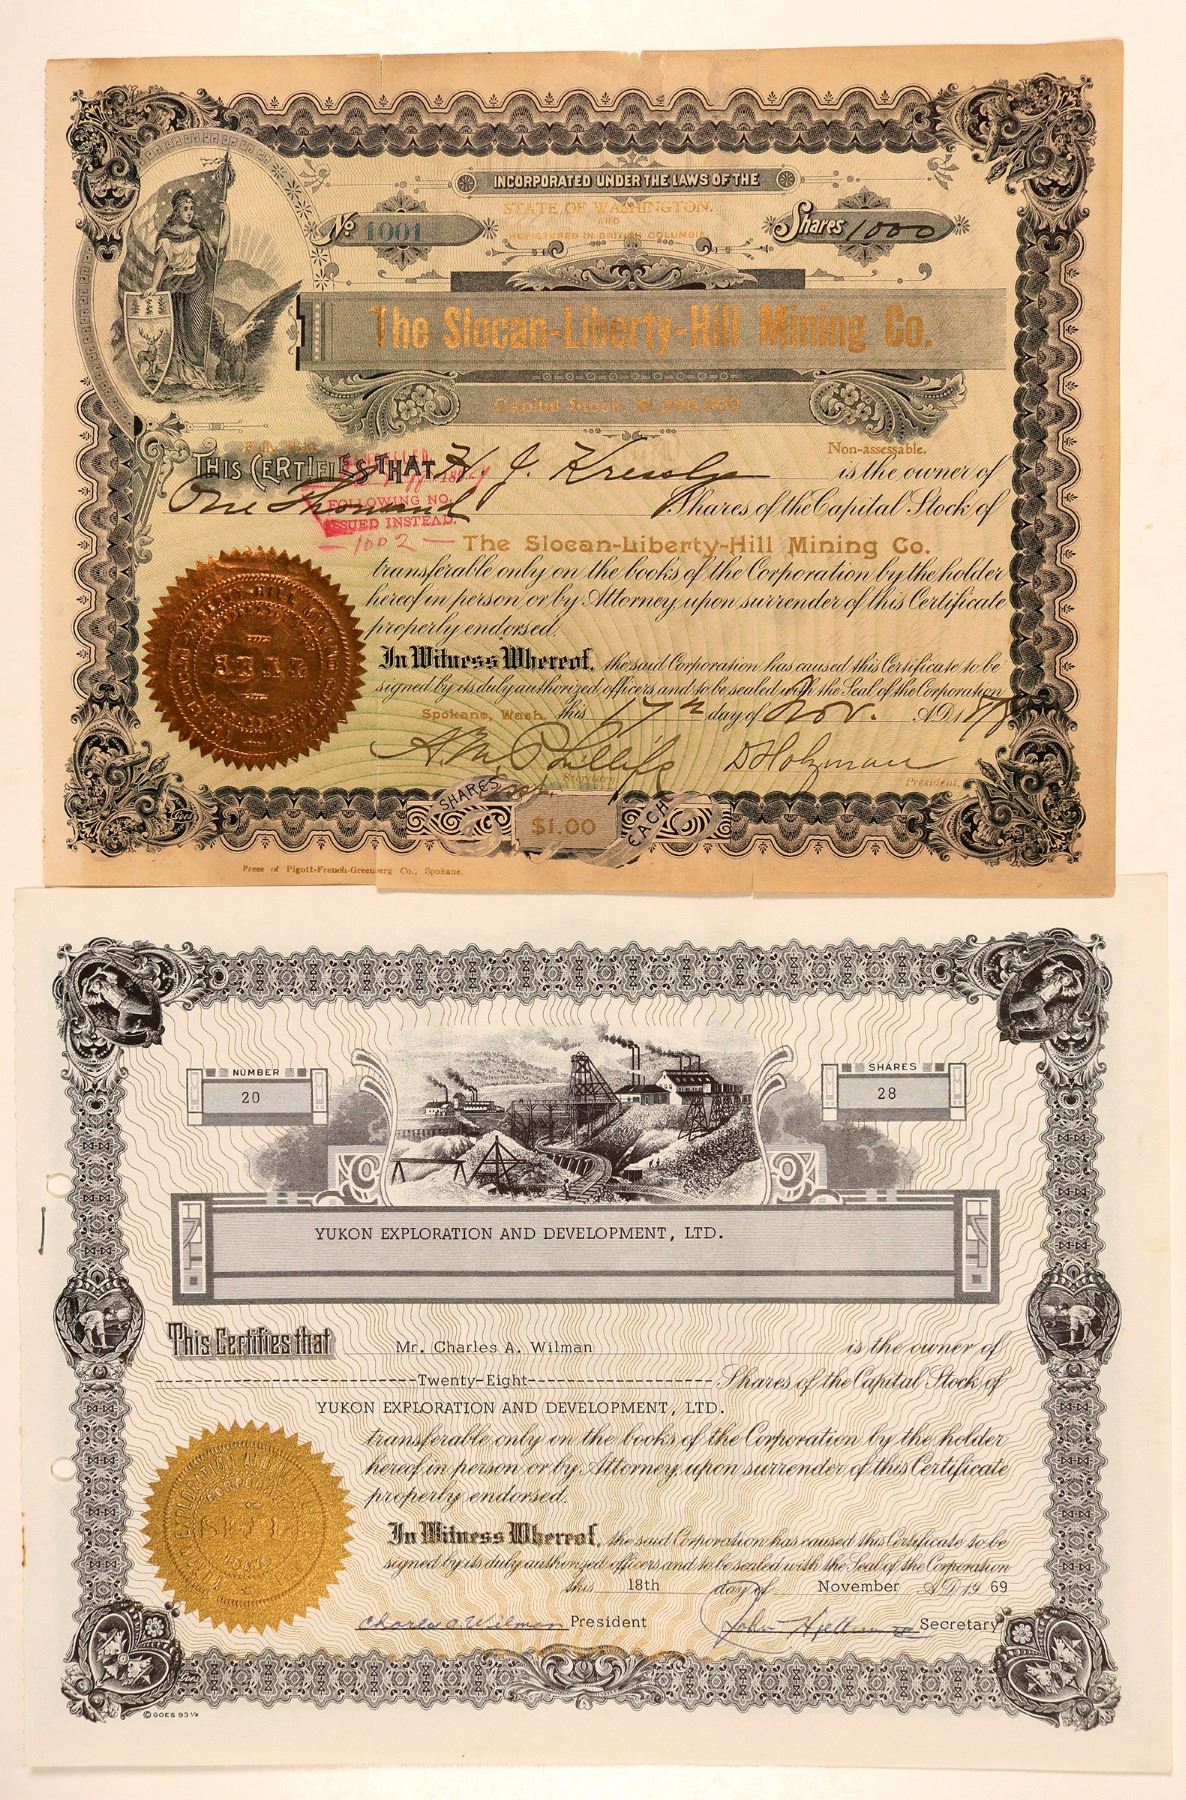 INCORPORATED UNDER THE LAWS OF THE
STATE OF WASHINGTON.
AND
REGISTERED IN BRITISH COLUMBIA
No 1001
Shares 1000
The Slocan-Liberty-Hill Mining Co.
Capital Stock, $1,500,000
Non-assessable.
THIS CERTIFIES THAT H. J. Kressly is the owner of
One Thousand Shares of the Capital Stock of
FOLLOWING NO.
ISSUED INSTEAD.
- 1002 -
The Slocan-Liberty-Hill Mining Co.
transferable only on the books of the Corporation by the holder
hereof in person or by Attorney upon surrender of this Certificate
properly endorsed.
In Witness Whereof, the said Corporation has caused this Certificate to be
signed by its duly authorized officers and to be sealed with the Seal of the Corporation
Spokane, Wash. this 17th day of Nov. A.D. 18
SEAL
A. M. Phillips
Secretary
D Holzman
President.
SHARES $1.00 EACH
Goes
Press of Pigott-French-Greenberg Co., Spokane.
NUMBER
20
SHARES
28
YUKON EXPLORATION AND DEVELOPMENT, LTD.
This Certifies that Mr. Charles A. Wilman is the owner of
Twenty-Eight Shares of the Capital Stock of
YUKON EXPLORATION AND DEVELOPMENT, LTD.
transferable only on the books of the Corporation by the holder
hereof in person or by Attorney upon surrender of this Certificate
properly endorsed.
In Witness Whereof, the said Corporation has caused this Certificate to be
signed by its duly authorized officers and to be sealed with the Seal of the Corporation
this 18th day of November A.D. 19 69
Charles A. Wilman President
John Secretary
© GOES 93 ½